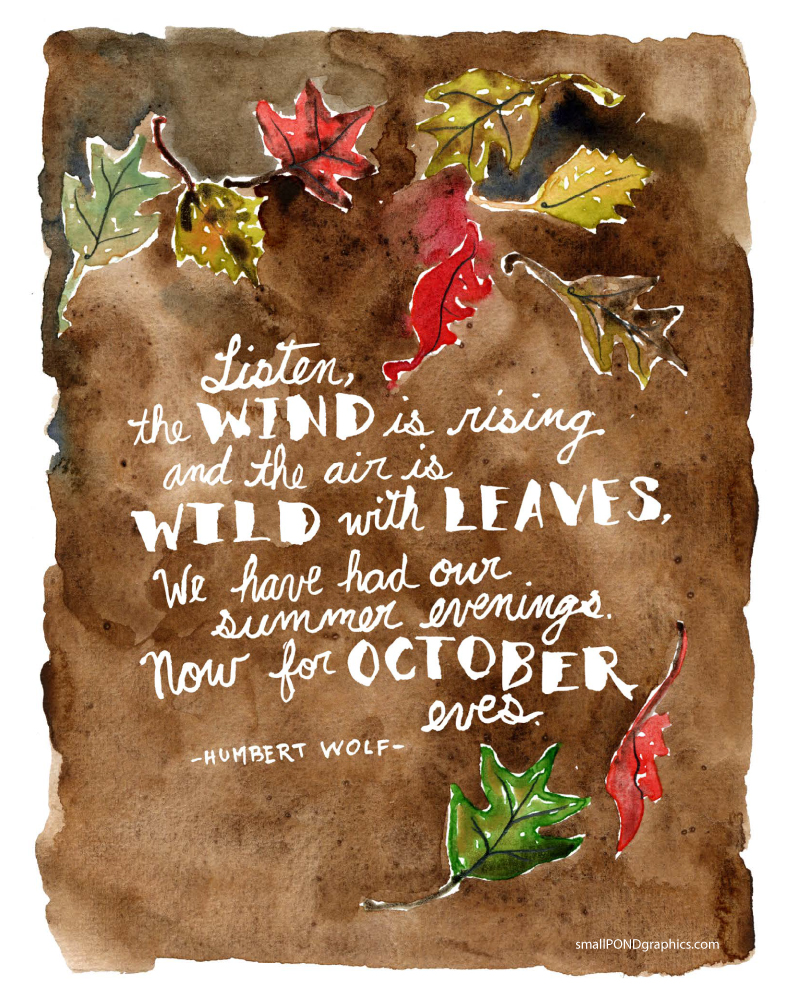 Listen,
the WIND is rising
and the air is
WILD with LEAVES,
We have had our
summer evenings.
Now for OCTOBER
eves.
-HUMBERT WOLF-
smallPONDgraphics.com